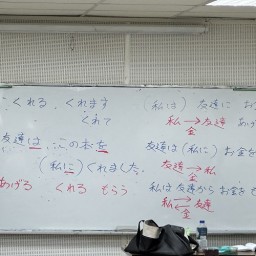 くれる、くれます
くれて
友達は、この本を
(私に)くれました。
あげる くれる もらう
(私は) 友達に お
私 → 友達 あ
金
友達は (私に) お金を
友達 → 私
金
私は友達からお金を
私 ← 友達
金